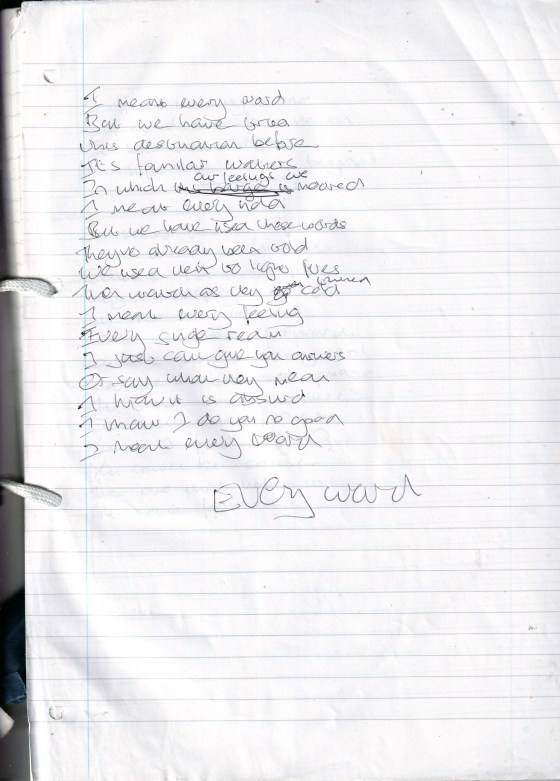 I mean every word
But we have tried
this destination before
It's familiar waters
In which our feelings are moored
I mean every
But we have used these words
They've already been told
We used them to light fires
watch as they turned cold
I mean every feeling
Every single
I just can't give you answers
Or say what they mean
I know it is absurd
I know I do you no good
I mean every word
Every word